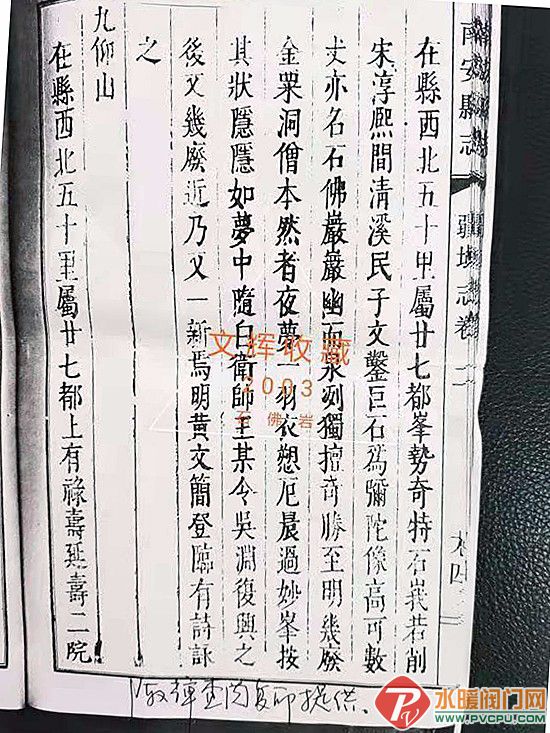 南安縣志
疆域志卷二
在縣西北五十里屬廿七都峯勢奇特石峩若削
宋淳熙間清溪民子文鑿巨石為彌陀像高可數
丈亦名石佛巖巖幽而泉冽獨擅奇勝至明幾廢
金粟洞僧本然者夜夢一羽衣愬厄晨過妙峯按
其狀隱隱如夢中隨白衛師主某令吳淵復興之
後又幾廢近乃又一新焉明黃文簡登臨有詩詠
之
九仰山
在縣西北五十里屬廿七都上有祿壽延壽二院
文辉收藏
2003
石佛岩
敬輝查阅复印提供、
水暖阀门网
WWW.PVCPU.COM